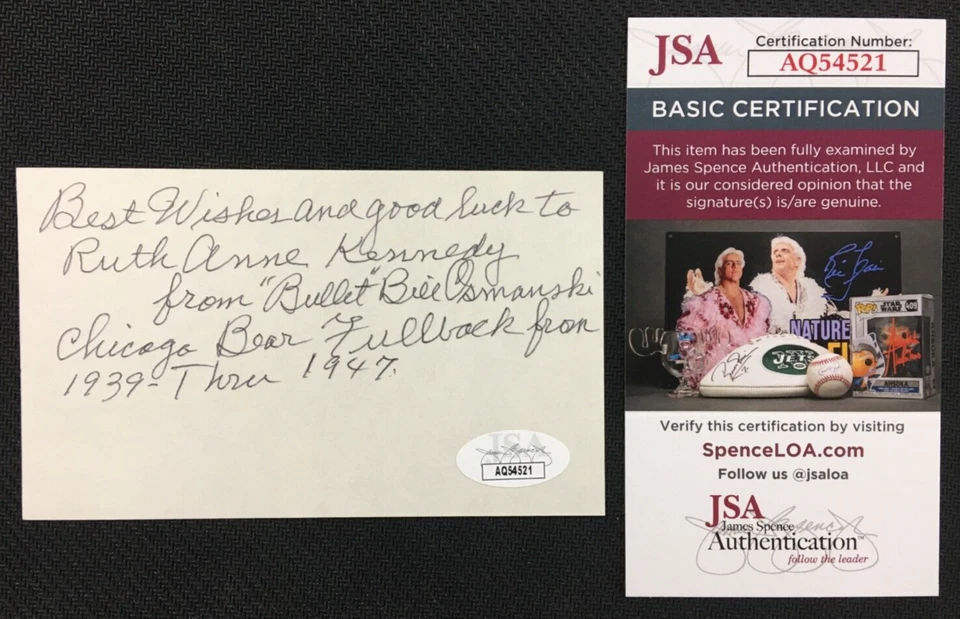 Best Wishes and good luck to
Ruth Anne Kennedy
from "Bullet" Bill Osmanski
Chicago Bear Fullback from
1939- Thru 1947.
JSA
AQ54521
JSA
Certification Number:
AQ54521
BASIC CERTIFICATION
This item has been fully examined by
James Spence Authentication, LLC and
it is our considered opinion that the
signature(s) is/are genuine.
NATURE
JETS
POP!
STAR WARS
409
AHSOKA
Verify this certification by visiting
SpenceLOA.com
Follow us @jsaloa
JSA
James Spence
Authentication™
follow the leader